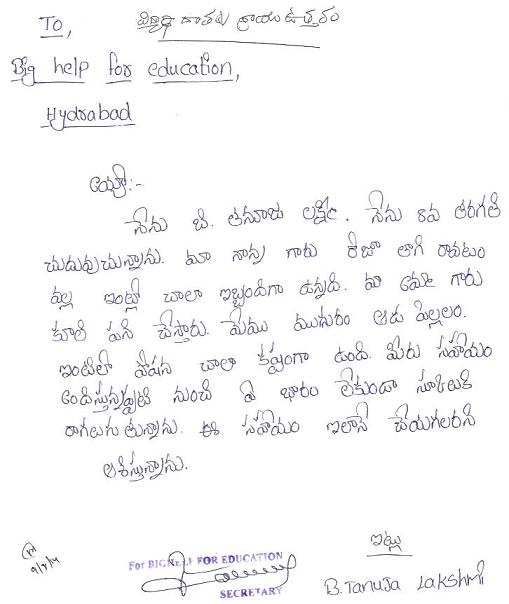 To, విద్యార్థి దాతకు వ్రాయు ఉత్తరం
Big help for education,
Hydrabad
అయ్యా:-
నేను బి. తనూజ లక్ష్మి. నేను 8వ తరగతి
చదువుచున్నాను. మా నాన్న గారు రోజూ తాగి రావటం
వల్ల ఇంట్లో చాలా ఇబ్బందిగా ఉన్నది. మా అమ్మ గారు
కూలి పని చేస్తారు. మేము ముగురం ఆడ పిల్లలం.
ఇంటిలో చాలా కష్టంగా ఉంది. మీరు సహాయం
అందిస్తున్నప్పటి నుంచి ఏ భారం లేకుండా స్కూలుకి
రాగలుగుతున్నాను. ఈ సహాయం ఇలానే చేయగలరని
ఆశిస్తున్నాను.
ఇట్లు
B. Tanuja Lakshmi
For BIG HELP FOR EDUCATION
SECRETARY